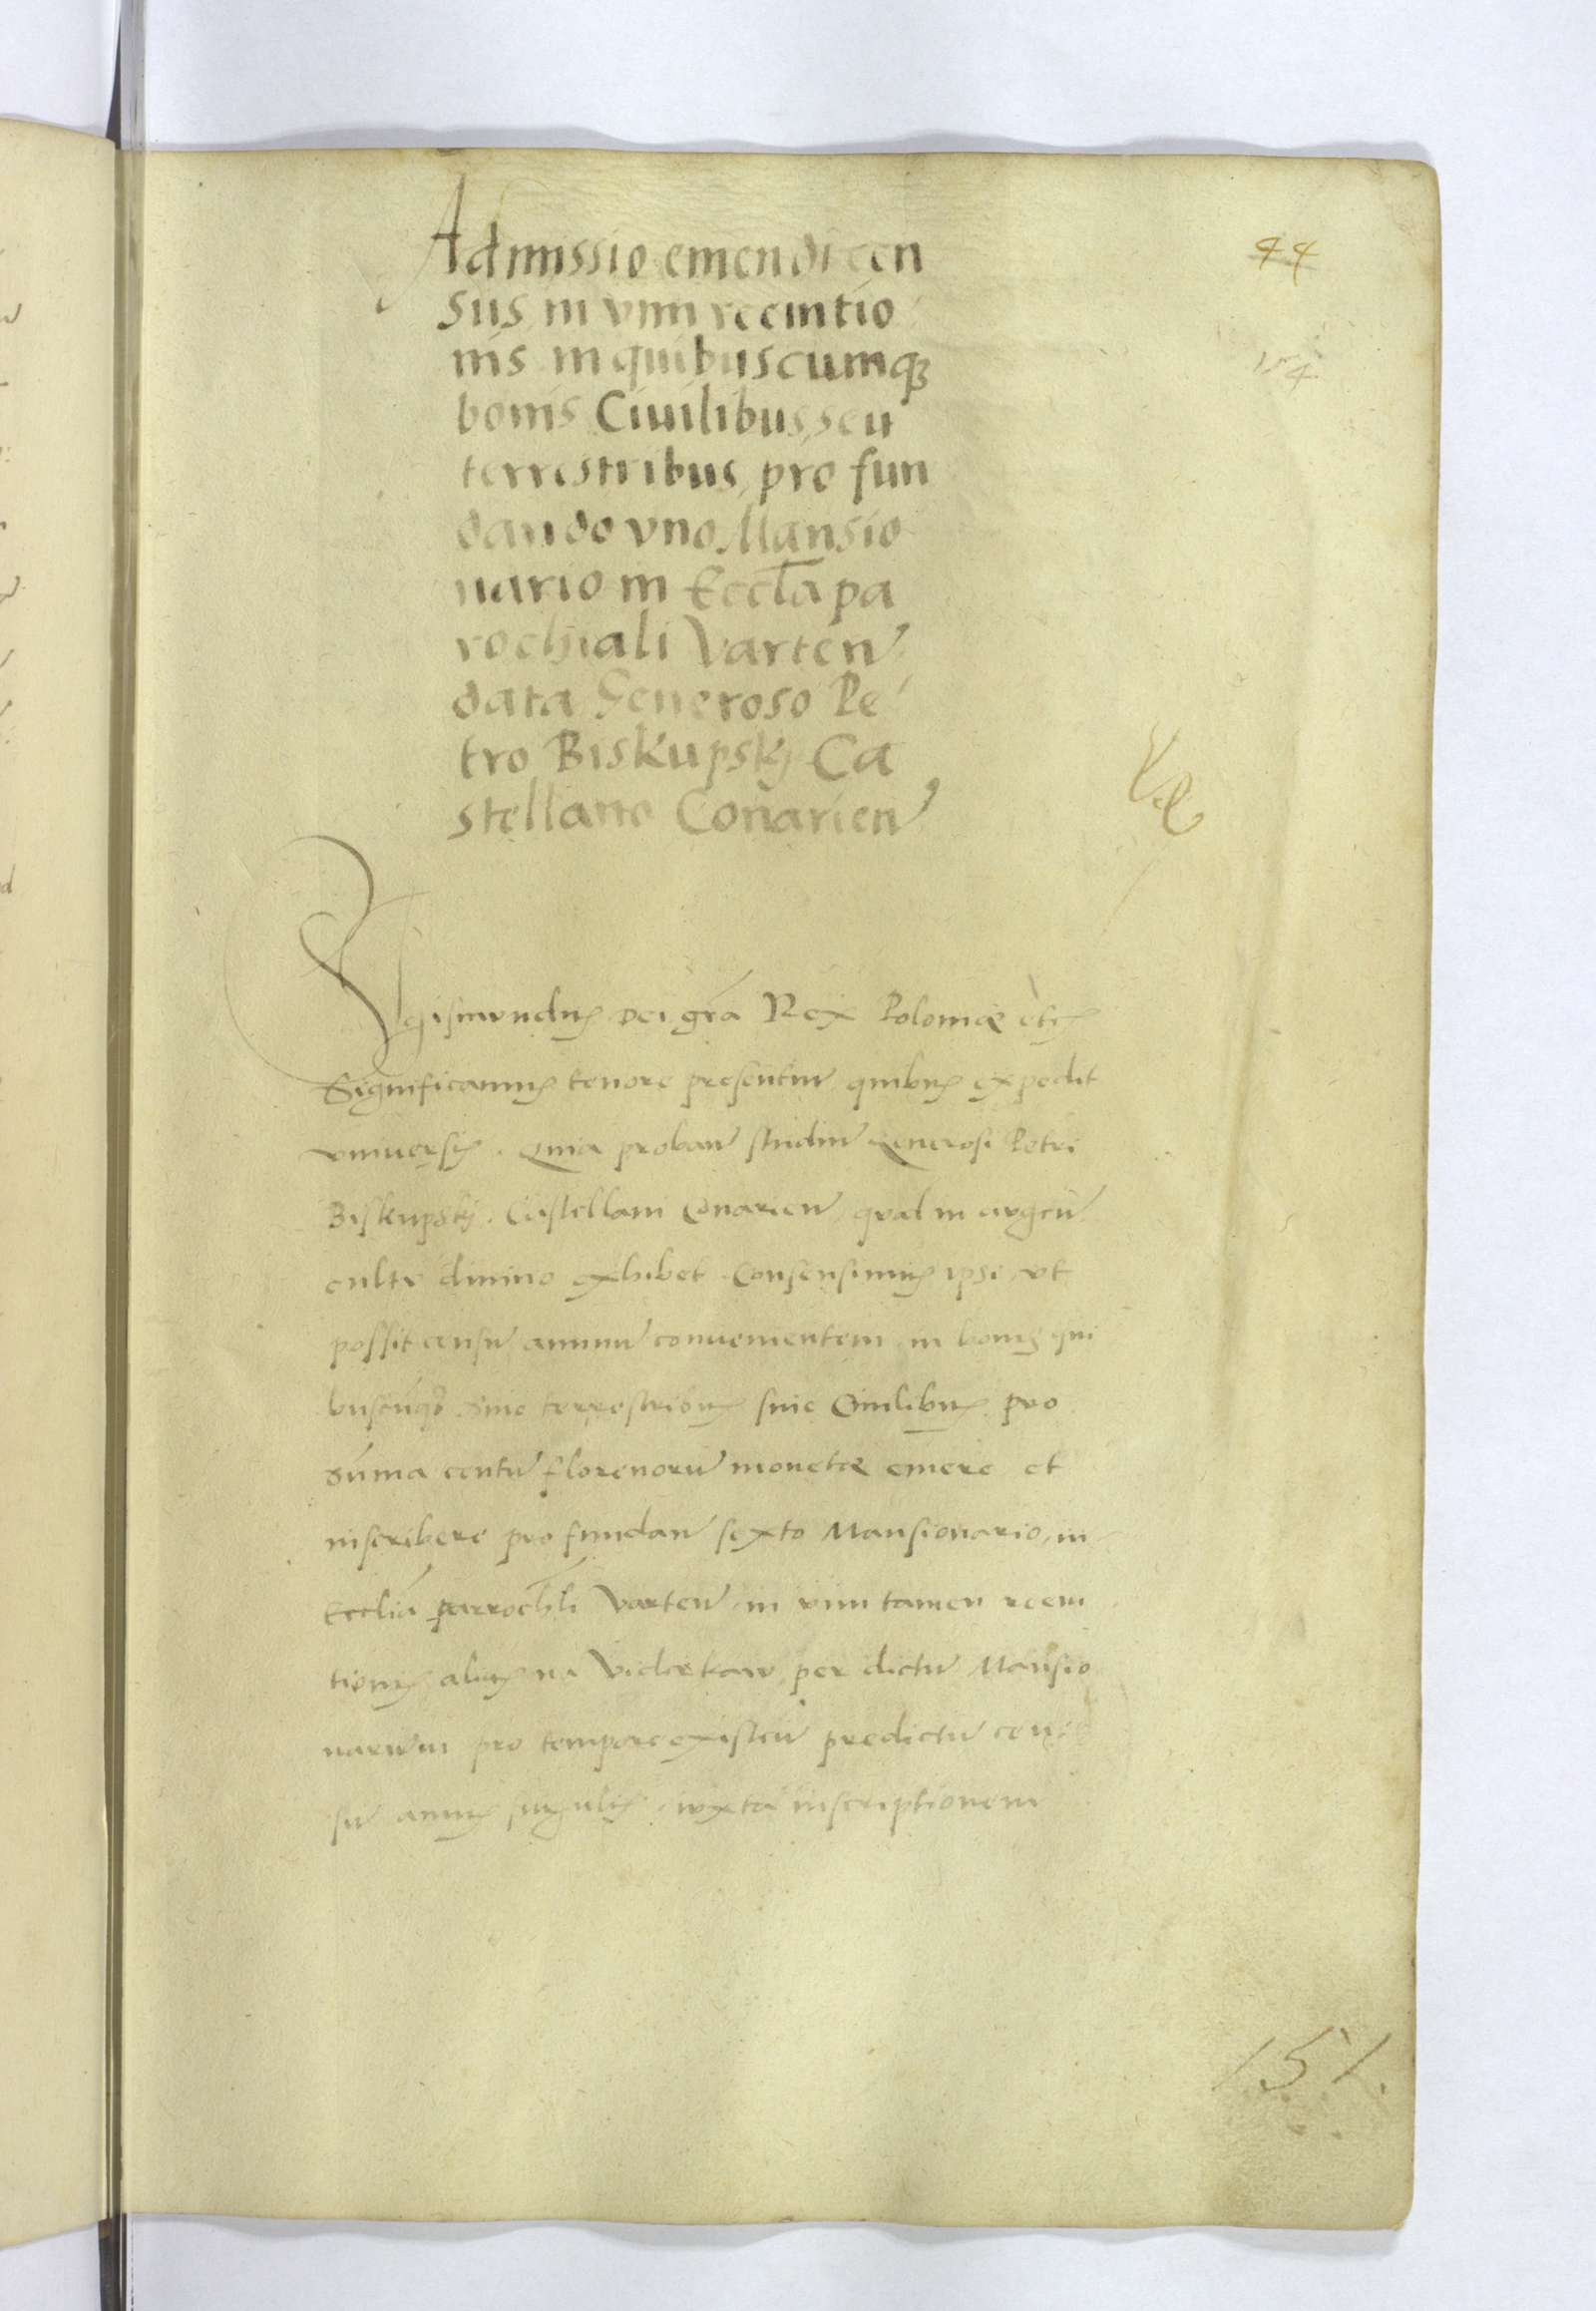 Admissio emendi cen
sus in vim reemtio
nis in quibuscumqꝫ
bonis Ciuilibus, seu
terrestribus, pro fun
dando vno Mansio
nario in Eccl̄a pa
rochiali Varteñ
data Generoso Pe
tro Biskupskÿ Ca
stellano Conarieñ
44
154
Sigismundus Dei gr̄a Rex Poloniæ ètc̃
Significamus tenore presentiũ quibus expedit
vniuersis. Quia probañ studiũ Generosi Petri
Biskupskÿ. Castellani Conarieñ quod in augeñ
cultu diuino exhibet. Consensimus ipsi, vt
possit censũ annuũ conuenientem in bonis qui
buscũqꝫ siue terrestribus siue Ciuilibus pro
sũma centũ florenorũ monetæ emere et
inscribere pro fundañ sexto Mansionario, in
Eccliã parrochłi Varteñ, in vim tamen reem
tionis alias na Viderkaw, per dictũ Mansio
narium pro tempore existeñ predictũ cen
sũ annis singulis, iuxta inscriptionem
151.